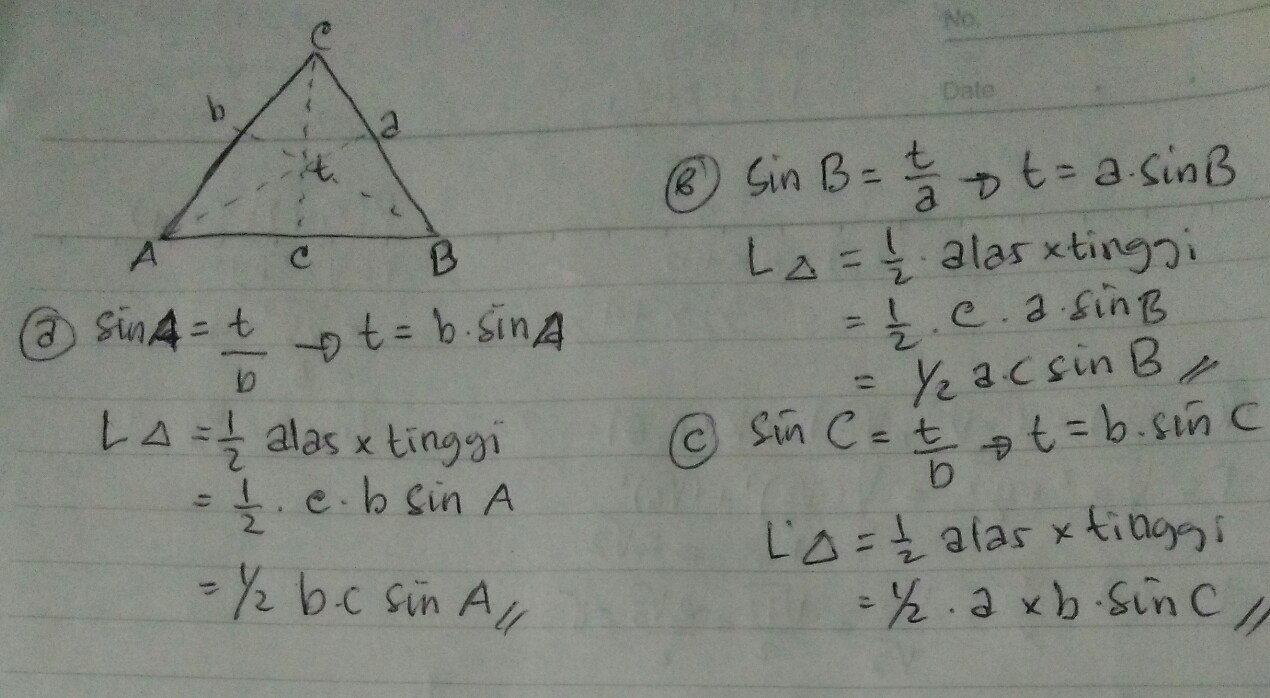 No.
Date
C
b
a
t
A
c
B
(a) sin A = t/b → t = b. sin A
L △ = 1/2 alas x tinggi
= 1/2 . c . b sin A
= 1/2 b.c sin A //
(B) Sin B = t/a → t = a. Sin B
L △ = 1/2 . alas x tinggi
= 1/2 . c . a . sin B
= 1/2 a.c sin B //
(C) Sin C = t/b → t = b. sin C
L △ = 1/2 alas x tinggi
= 1/2 . a x b . Sin C //